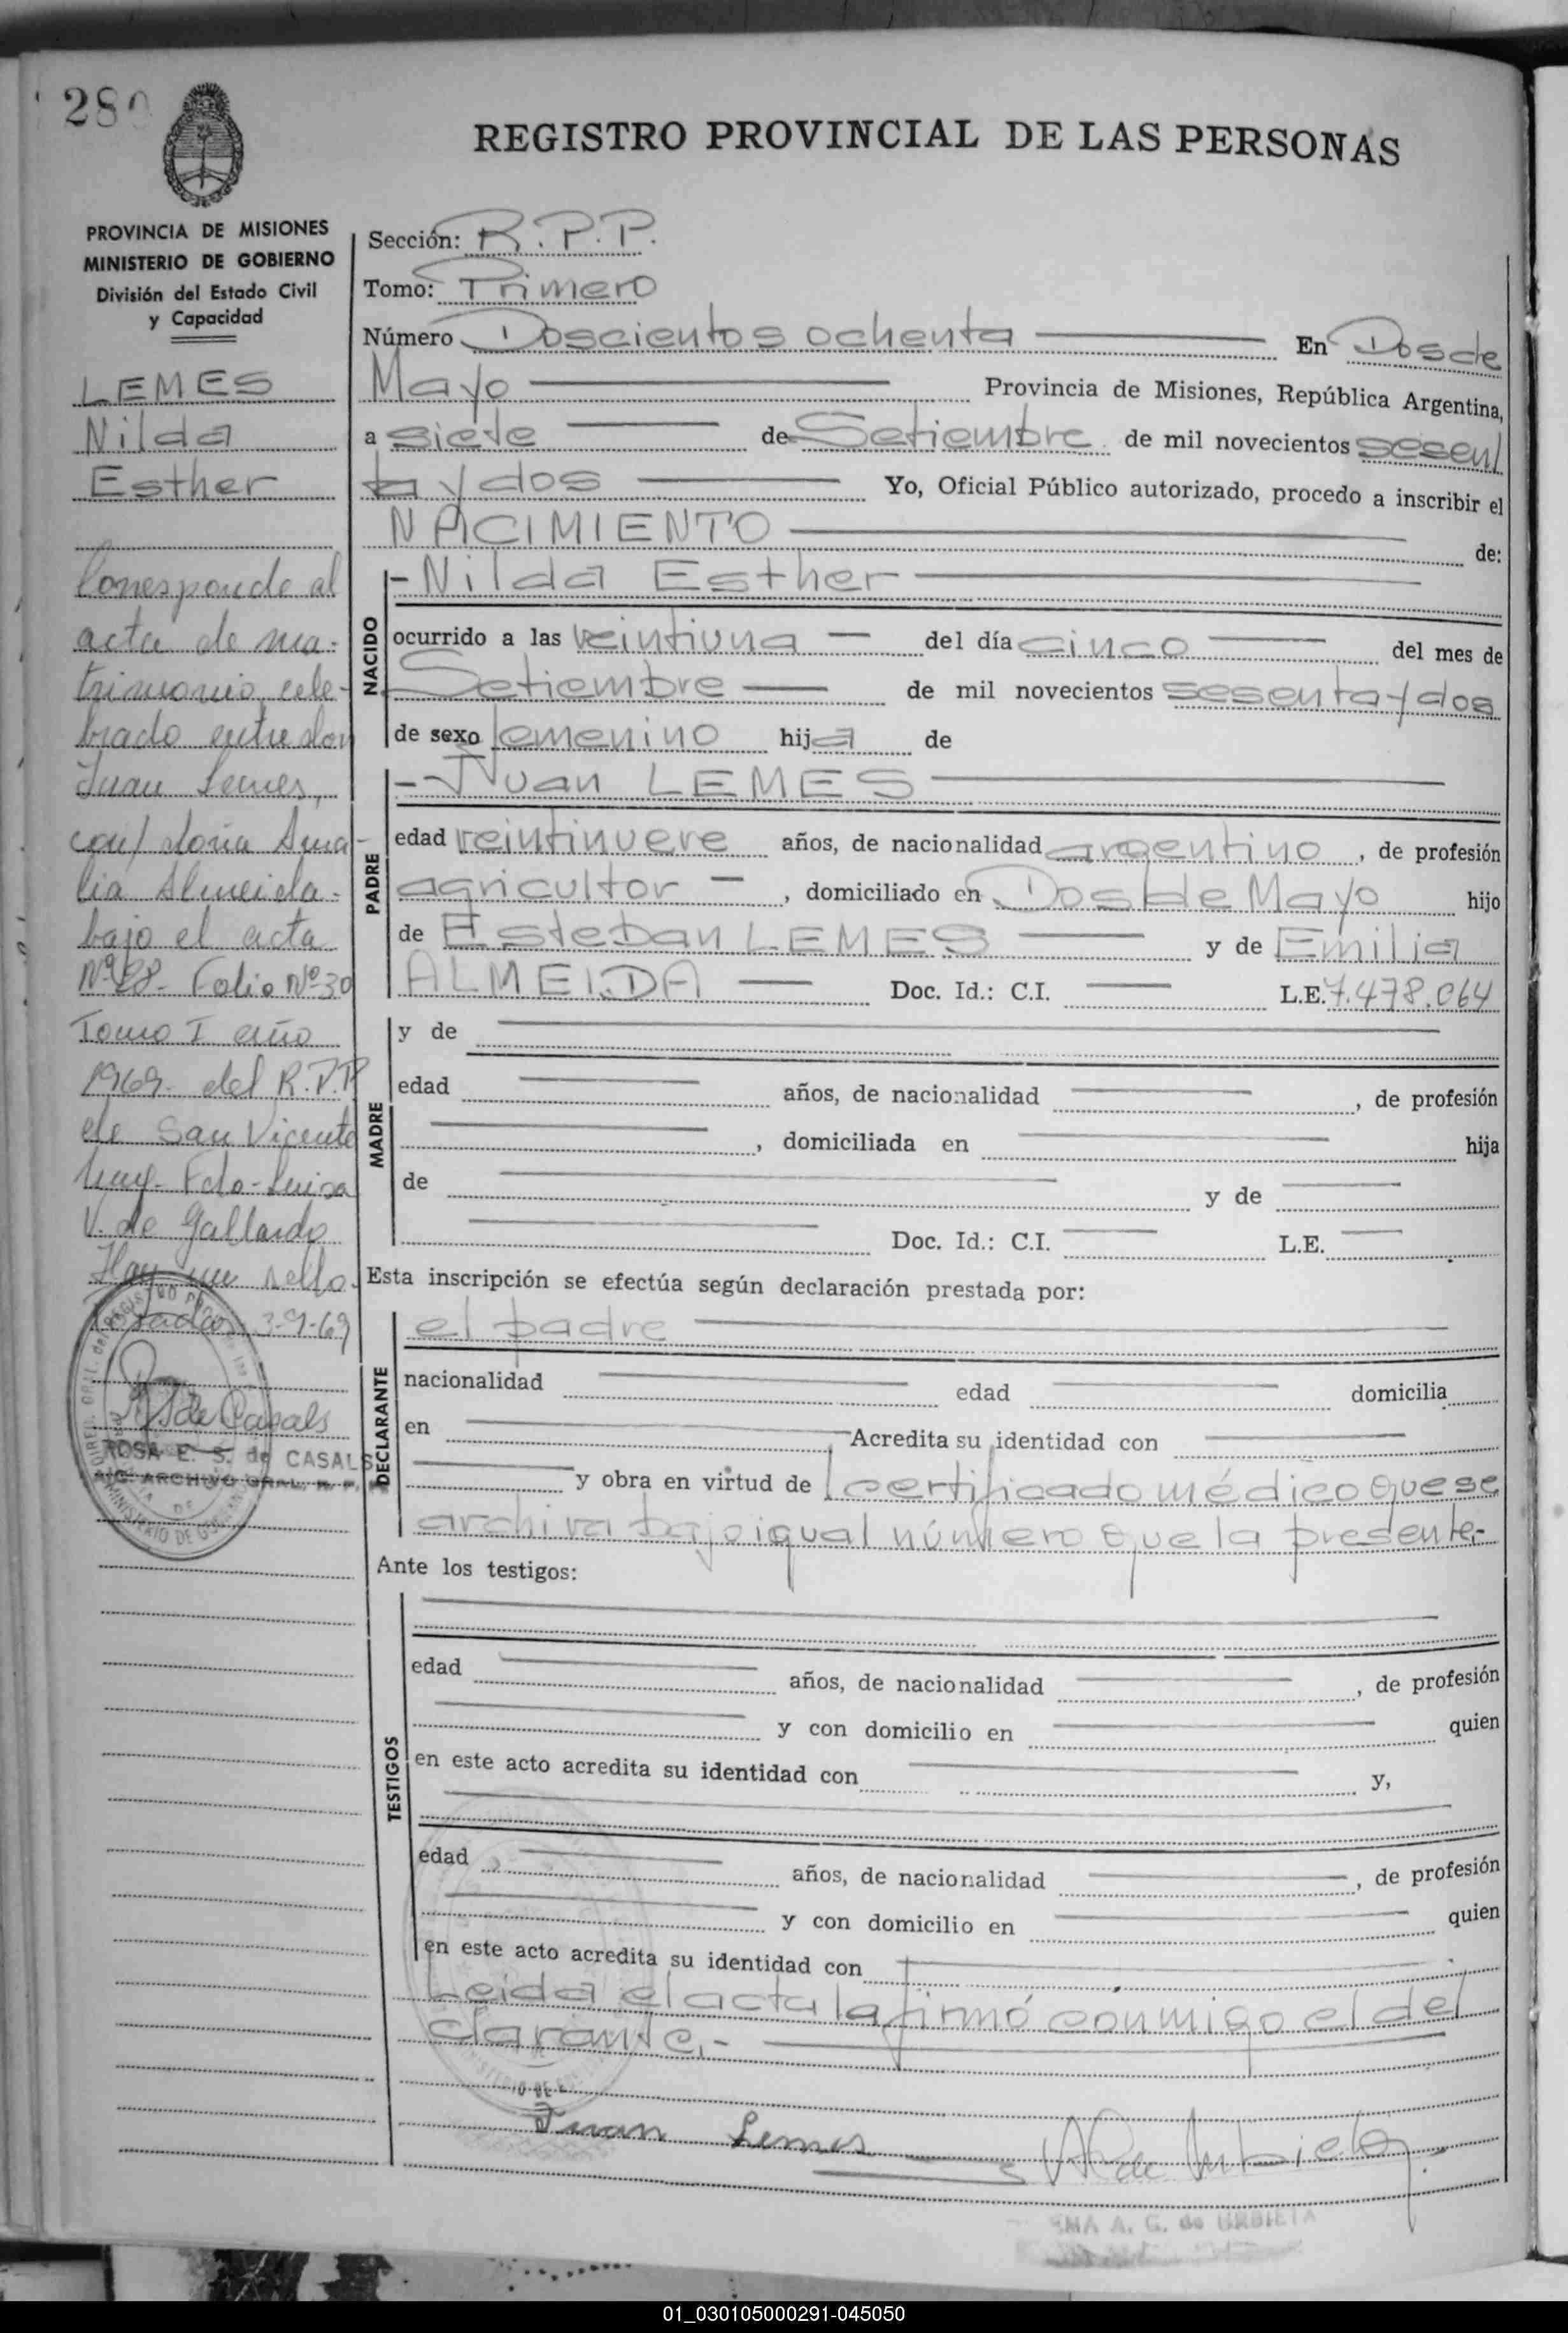 280
REGISTRO PROVINCIAL DE LAS PERSONAS
PROVINCIA DE MISIONES
MINISTERIO DE GOBIERNO
División del Estado Civil
y Capacidad
LEMES
Nilda
Esther
Corresponde al
acta de ma-
trimonio cele-
brado entre don
Juan Lemes,
con/ doña Ama-
lia Almeida-
bajo el acta
Nº 28- Folio Nº 30
Tomo I año
1969- del R.P.P
de San Vicente
Fdo- Luisa
V. de Gallardo
Hay un sello.
3-9-69
de Casals
ROSA E. S. de CASALS
ARCHIVO GRAL. R. P.
Sección: R.P.P.
Tomo: Primero
Número Doscientos ochenta En Dos de
Mayo Provincia de Misiones, República Argentina,
a siete de Setiembre de mil novecientos sesen/
ta y dos Yo, Oficial Público autorizado, procedo a inscribir el
NACIMIENTO de:
NACIDO
-Nilda Esther
ocurrido a las veintiuna del día cinco del mes de
Setiembre de mil novecientos sesenta y dos
de sexo femenino hija de
PADRE
-Juan LEMES
edad veintinueve años, de nacionalidad argentino, de profesión
agricultor -, domiciliado en Dos de Mayo hijo
de Esteban LEMES y de Emilia
ALMEIDA Doc. Id.: C.I. L.E. 7.478.064
MADRE
y de
edad años, de nacionalidad , de profesión
, domiciliada en hija
de y de
Doc. Id.: C.I. L.E.
Esta inscripción se efectúa según declaración prestada por:
DECLARANTE
el padre
nacionalidad edad domicilia
en Acredita su identidad con
y obra en virtud de certificado médico que se
archiva bajo igual número que la presente.-
Ante los testigos:
TESTIGOS
edad años, de nacionalidad , de profesión
y con domicilio en quien
en este acto acredita su identidad con y,
edad años, de nacionalidad , de profesión
y con domicilio en quien
en este acto acredita su identidad con
Leida el acta la firmó conmigo el de/
clarante.-
Juan Lemes
A. G. de URBIETA
01_030105000291-045050